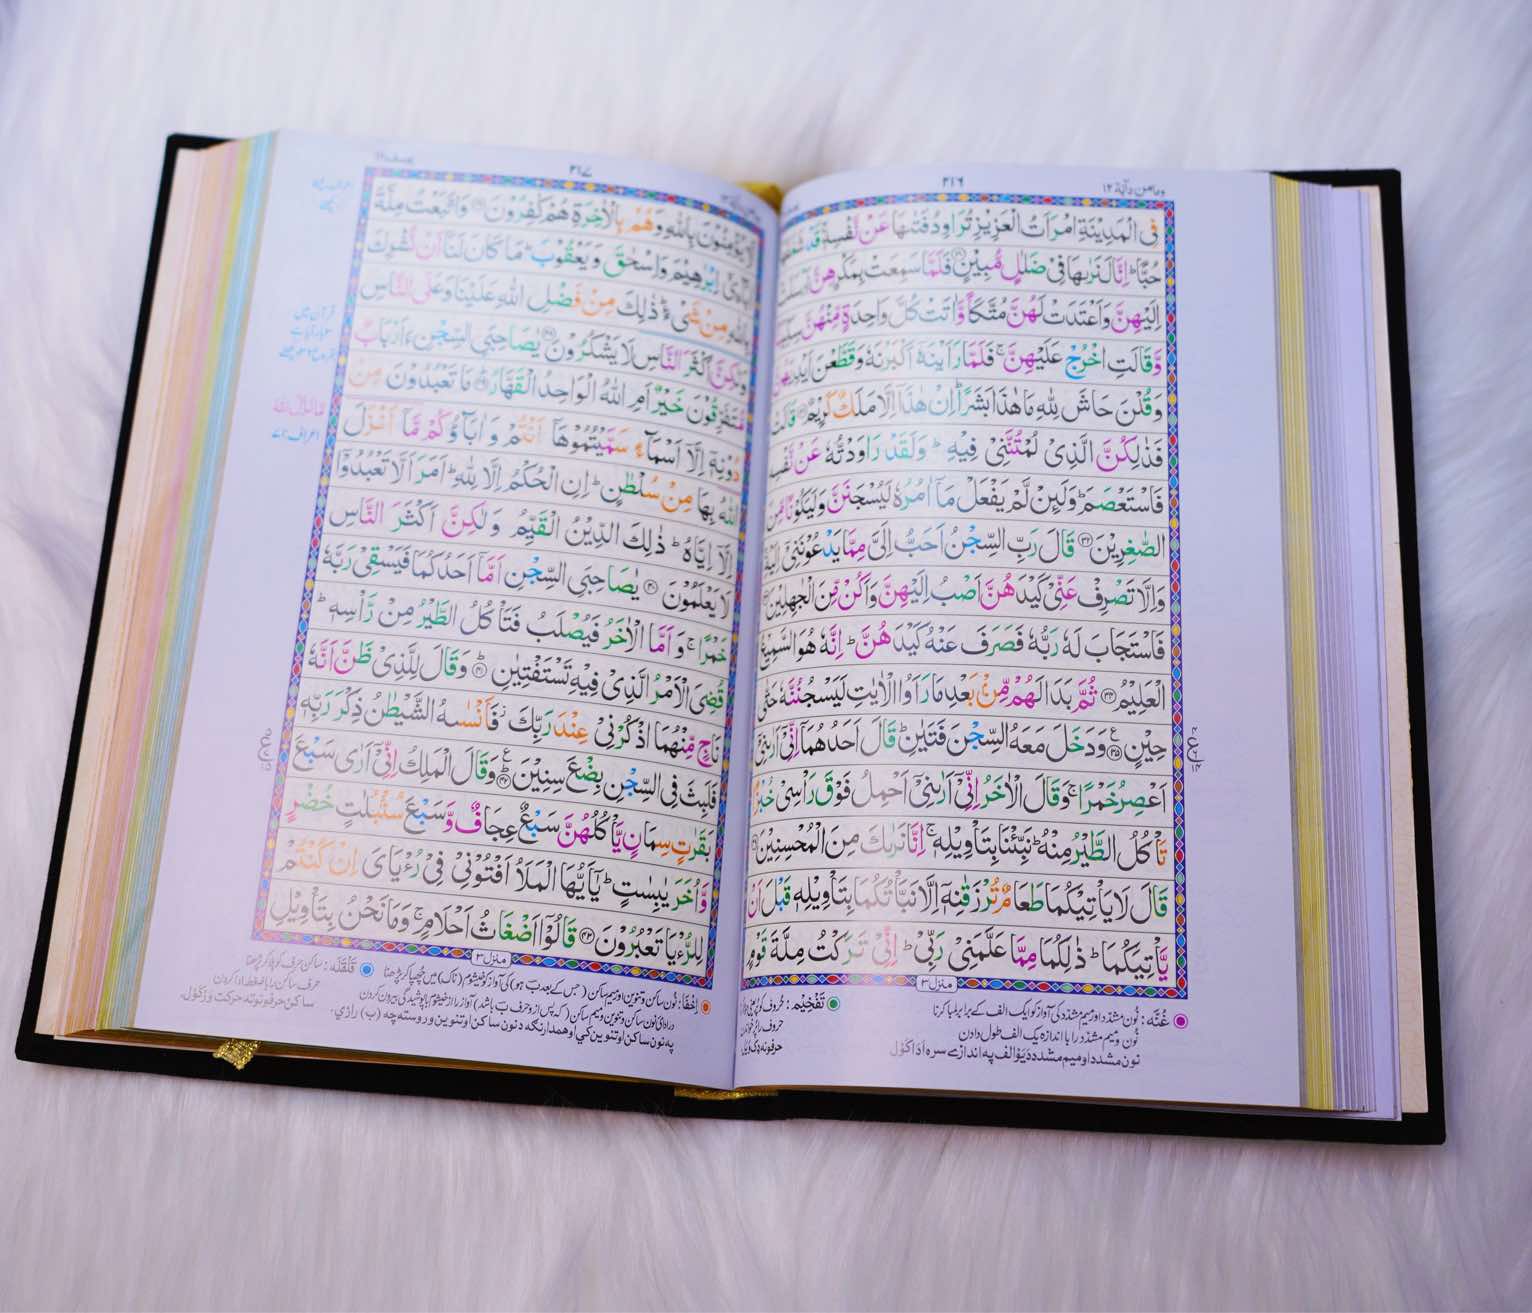 ٢١٦
وما من دآبة ١٢
فِى الْمَدِيْنَةِ امْرَاَتُ الْعَزِيْزِ تُرَاوِدُ فَتٰىهَا عَنْ نَّفْسِهٖ ۚ قَدْ شَغَفَهَا
حُبًّا ؕ اِنَّا لَنَرٰىهَا فِىْ ضَلٰلٍ مُّبِيْنٍ ﴿۳۰﴾ فَلَمَّا سَمِعَتْ بِمَكْرِهِنَّ اَرْسَلَتْ
اِلَيْهِنَّ وَاَعْتَدَتْ لَهُنَّ مُتَّكَاً وَّاٰتَتْ كُلَّ وَاحِدَةٍ مِّنْهُنَّ سِكِّيْنًا
وَّقَالَتِ اخْرُجْ عَلَيْهِنَّ ۚ فَلَمَّا رَاَيْنَهٗۤ اَكْبَرْنَهٗ وَقَطَّعْنَ اَيْدِيَهُنَّ
وَقُلْنَ حَاشَ لِلّٰهِ مَا هٰذَا بَشَرًا ؕ اِنْ هٰذَاۤ اِلَّا مَلَكٌ كَرِيْمٌ ﴿۳۱﴾ قَالَتْ
فَذٰلِكُنَّ الَّذِىْ لُمْتُنَّنِىْ فِيْهِ ؕ وَلَقَدْ رَاوَدْتُّهٗ عَنْ نَّفْسِهٖ
فَاسْتَعْصَمَ ؕ وَلَئِنْ لَّمْ يَفْعَلْ مَاۤ اٰمُرُهٗ لَيُسْجَنَنَّ وَلَيَكُوْنًا مِّنَ
الصّٰغِرِيْنَ ﴿۳۲﴾ قَالَ رَبِّ السِّجْنُ اَحَبُّ اِلَىَّ مِمَّا يَدْعُوْنَنِىْۤ اِلَيْهِ
وَاِلَّا تَصْرِفْ عَنِّىْ كَيْدَهُنَّ اَصْبُ اِلَيْهِنَّ وَاَكُنْ مِّنَ الْجٰهِلِيْنَ
فَاسْتَجَابَ لَهٗ رَبُّهٗ فَصَرَفَ عَنْهُ كَيْدَهُنَّ ؕ اِنَّهٗ هُوَ السَّمِيْعُ
الْعَلِيْمُ ﴿۳۴﴾ ثُمَّ بَدَا لَهُمْ مِّنْۢ بَعْدِ مَا رَاَوُا الْاٰيٰتِ لَيَسْجُنُنَّهٗ حَتّٰى
حِيْنٍ ﴿۳۵﴾ وَدَخَلَ مَعَهُ السِّجْنَ فَتَيٰنِ ؕ قَالَ اَحَدُهُمَاۤ اِنِّىْۤ اَرٰىنِىْۤ
اَعْصِرُ خَمْرًا ۚ وَقَالَ الْاٰخَرُ اِنِّىْۤ اَرٰىنِىْۤ اَحْمِلُ فَوْقَ رَاْسِىْ خُبْزًا
تَاْكُلُ الطَّيْرُ مِنْهُ ؕ نَبِّئْنَا بِتَاْوِيْلِهٖ ۚ اِنَّا نَرٰىكَ مِنَ الْمُحْسِنِيْنَ ﴿۳۶﴾
قَالَ لَا يَاْتِيْكُمَا طَعَامٌ تُرْزَقٰنِهٖۤ اِلَّا نَبَّاْتُكُمَا بِتَاْوِيْلِهٖ قَبْلَ اَنْ
يَّاْتِيَكُمَا ؕ ذٰلِكُمَا مِمَّا عَلَّمَنِىْ رَبِّىْ ؕ اِنِّىْ تَرَكْتُ مِلَّةَ قَوْمٍ
منزل ۳
غُنَّه : نُون مشدد اور میم مشدد کی آواز کو ایک الف کے برابر لمبا کرنا
نُون و میم مشدد را با اندازہ یک الف طول دادن
نون مشدد او میم مشدد د یؤ الف په اندازے سره اَدَا کَوُل
تَفْخِيْم :
٢١٧
لَّا يُؤْمِنُوْنَ بِاللّٰهِ وَهُمْ بِالْاٰخِرَةِ هُمْ كٰفِرُوْنَ ﴿۳۷﴾ وَاتَّبَعْتُ مِلَّةَ
اٰبَآءِىْۤ اِبْرٰهِيْمَ وَاِسْحٰقَ وَيَعْقُوْبَ ؕ مَا كَانَ لَنَاۤ اَنْ نُّشْرِكَ
بِاللّٰهِ مِنْ شَىْءٍ ؕ ذٰلِكَ مِنْ فَضْلِ اللّٰهِ عَلَيْنَا وَعَلَى النَّاسِ
وَلٰكِنَّ اَكْثَرَ النَّاسِ لَا يَشْكُرُوْنَ ﴿۳۸﴾ يٰصَاحِبَىِ السِّجْنِ ءَاَرْبَابٌ
مُّتَفَرِّقُوْنَ خَيْرٌ اَمِ اللّٰهُ الْوَاحِدُ الْقَهَّارُ ﴿۳۹﴾ مَا تَعْبُدُوْنَ مِنْ
دُوْنِهٖۤ اِلَّاۤ اَسْمَآءً سَمَّيْتُمُوْهَاۤ اَنْتُمْ وَاٰبَآؤُكُمْ مَّاۤ اَنْزَلَ
اللّٰهُ بِهَا مِنْ سُلْطٰنٍ ؕ اِنِ الْحُكْمُ اِلَّا لِلّٰهِ ؕ اَمَرَ اَلَّا تَعْبُدُوْۤا
اِلَّاۤ اِيَّاهُ ؕ ذٰلِكَ الدِّيْنُ الْقَيِّمُ وَلٰكِنَّ اَكْثَرَ النَّاسِ
لَا يَعْلَمُوْنَ ﴿۴۰﴾ يٰصَاحِبَىِ السِّجْنِ اَمَّاۤ اَحَدُكُمَا فَيَسْقِىْ رَبَّهٗ
خَمْرًا ۚ وَاَمَّا الْاٰخَرُ فَيُصْلَبُ فَتَاْكُلُ الطَّيْرُ مِنْ رَّاْسِهٖ ؕ
قُضِىَ الْاَمْرُ الَّذِىْ فِيْهِ تَسْتَفْتِيٰنِ ﴿۴۱﴾ وَقَالَ لِلَّذِىْ ظَنَّ اَنَّهٗ
نَاجٍ مِّنْهُمَا اذْكُرْنِىْ عِنْدَ رَبِّكَ ۫ فَاَنْسٰىهُ الشَّيْطٰنُ ذِكْرَ رَبِّهٖ
فَلَبِثَ فِى السِّجْنِ بِضْعَ سِنِيْنَ ﴿۴۲﴾ وَقَالَ الْمَلِكُ اِنِّىْۤ اَرٰى سَبْعَ
بَقَرٰتٍ سِمَانٍ يَّاْكُلُهُنَّ سَبْعٌ عِجَافٌ وَّسَبْعَ سُنْۢبُلٰتٍ خُضْرٍ
وَّاُخَرَ يٰبِسٰتٍ ؕ يٰۤاَيُّهَا الْمَلَاُ اَفْتُوْنِىْ فِىْ رُءْيَاىَ اِنْ كُنْتُمْ
لِلرُّءْيَا تَعْبُرُوْنَ ﴿۴۳﴾ قَالُوْۤا اَضْغَاثُ اَحْلَامٍ ۚ وَمَا نَحْنُ بِتَاْوِيْلِ
منزل ۳
اِخْفَا : نُون ساکن و تنوین اور میم ساکن ( جس کے بعد ب ہو) کی آواز کو خیشوم (ناک) میں چھپا کر پڑھنا
پہ نون ساکن او تنوین کی او همدارنگه د نون ساکن او تنوین وروسته چه (ب) رازي.
قَلْقَلَه : ساکن حرف کو ہلا کر پڑھنا
حرف ساکن را با ضغطه ادا کردن
ساکن حرفو نو ته حرکت ورکَوُل.